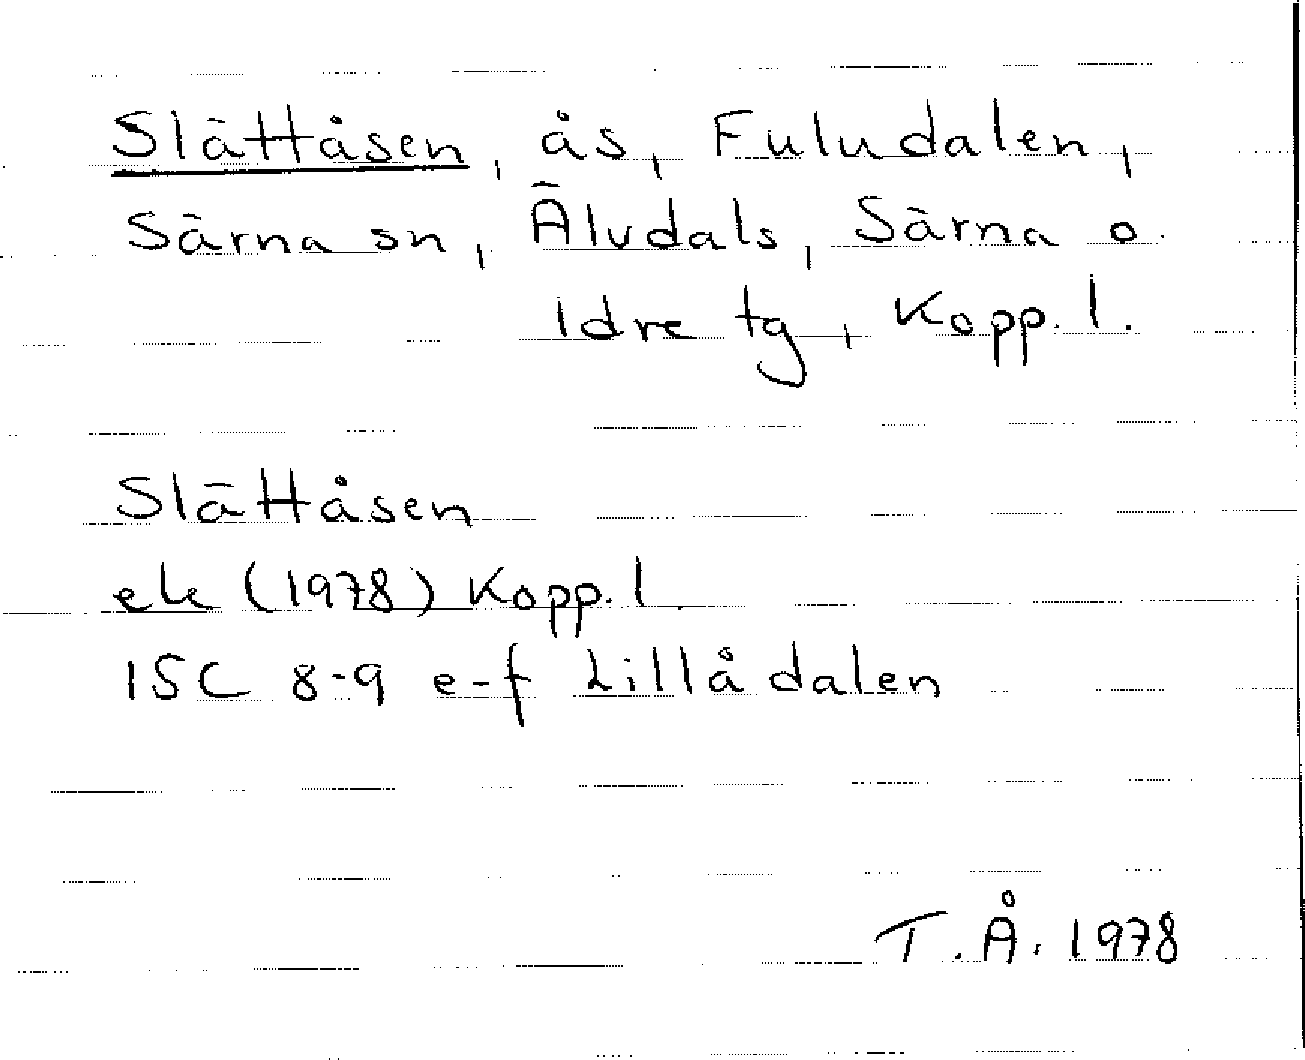 Slättåsen, ås, Fuludalen,
Särna sn, Älvdals, Särna o
Idre tg, Kopp. l.
Slättåsen
ek (1978) Kopp. l.
15C 8-9 e-f Lillådalen
T.Å. 1978